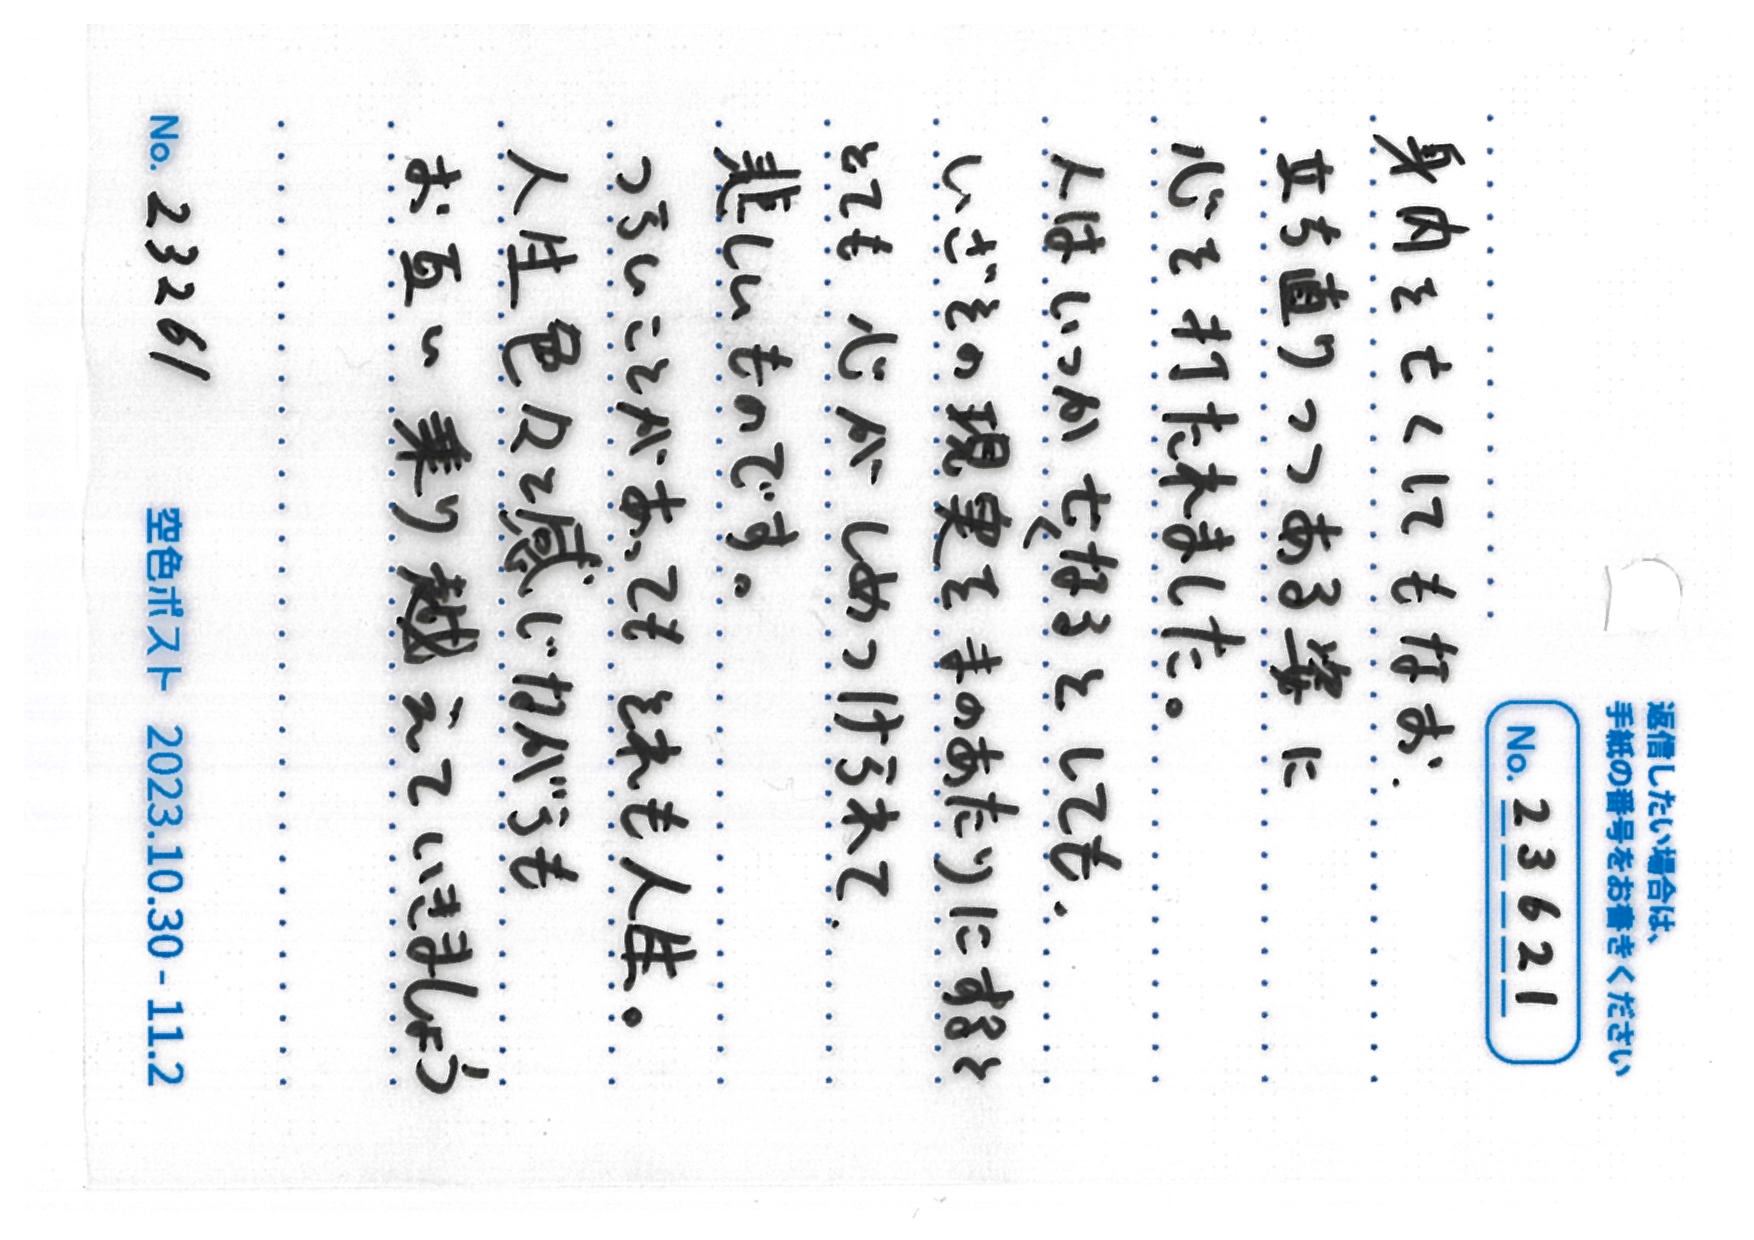 返信したい場合は、
手紙の番号をお書きください
No. 23621
身内を亡くしてもなお、
立ち直りつつある姿に
心を打たれました。
人はいつか亡くなるとしても、
いざその現実をまのあたりにすると
とても心がしめつけられて、
悲しいものです。
つらいことがあってもそれも人生。
人生色々と感じながらも
お互い乗り越えていきましょう
No. 23261
空色ポスト 2023.10.30 - 11.2